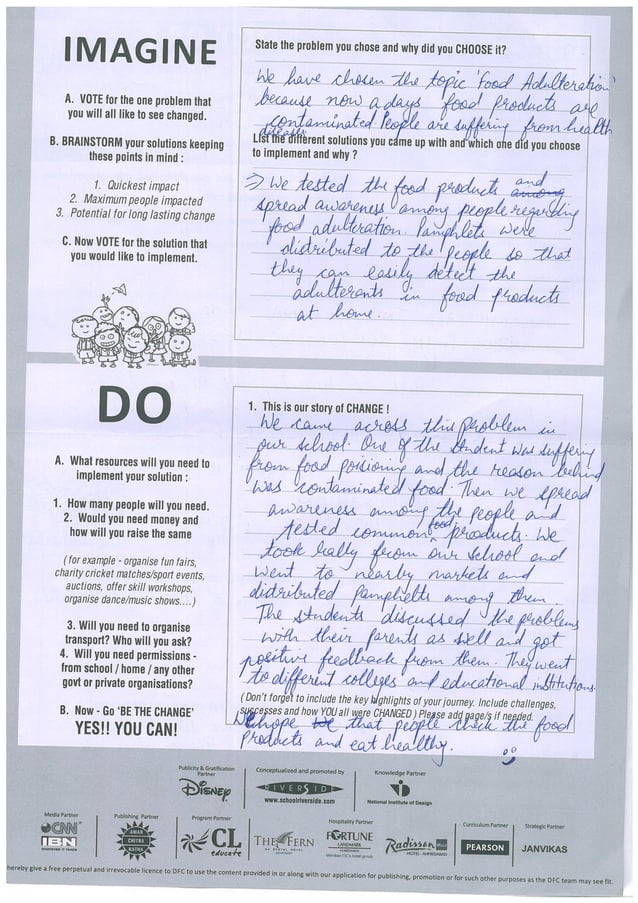 IMAGINE
A. VOTE for the one problem that
you will all like to see changed.
B. BRAINSTORM your solutions keeping
these points in mind :
1. Quickest impact
2. Maximum people impacted
3. Potential for long lasting change
C. Now VOTE for the solution that
you would like to implement.
State the problem you chose and why did you CHOOSE it?
We have chosen the topic 'Food Adulteration'
because now a days food products are
contaminated People are suffering from health
diseases.
List the different solutions you came up with and which one did you choose
to implement and why ?
⇒ We tested the food products and among
spread awareness among people regarding
food adulteration. Pamphlets were
distributed to the People so that
they can easily detect the
adulterants in food products
at home.
DO
A. What resources will you need to
implement your solution :
1. How many people will you need.
2. Would you need money and
how will you raise the same
( for example - organise fun fairs,
charity cricket matches/sport events,
auctions, offer skill workshops,
organise dance/music shows....)
3. Will you need to organise
transport? Who will you ask?
4. Will you need permissions -
from school / home / any other
govt or private organisations?
B. Now - Go 'BE THE CHANGE'
YES!! YOU CAN!
1. This is our story of CHANGE !
We came across this problem in
our school. One of the student was suffering
from food poisioning and the reason behind
was contaminated food. Then we spread
awareness among the people and
tested common food products. We
took rally from our school and
went to nearby markets and
distributed Pamphelts among them
The students discussed the problems
with their parents as well and got
positive feedback from them. They went
to different colleges and educational institutions.
( Don't forget to include the key highlights of your journey. Include challenges,
successes and how YOU all were CHANGED ) Please add page/s if needed.
We hope that people check the food
products and eat healthy.
Publicity & Gratification
Partner
Disney
Conceptualized and promoted by
RIVERSIDE
www.schoolriverside.com
Knowledge Partner
National Institute of Design
Media Partner
CNN
IBN
Publishing Partner
AMAR
CHITRA
KATHA
Program Partner
CL
educate
Hospitality Partner
THE FERN
FORTUNE
LANDMARK
Member ITC's hotel group
Radisson BLU
HOTEL AHMEDABAD
Curriculum Partner
PEARSON
Strategic Partner
JANVIKAS
hereby give a free perpetual and irrevocable licence to DFC to use the content provided in or along with our application for publishing, promotion or for such other purposes as the DFC team may see fit.